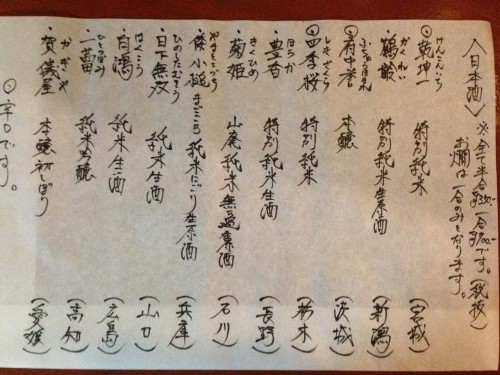 〈日本酒〉
※全て半合 一合 です。(税抜)
お燗は一合のみとなります。
けんこんいち
⦿乾坤一 特別純米 (宮城)
かくれい
・鶴齢 特別純米生原酒 (新潟)
ふちゅうほまれ
⦿府中誉 本醸 (茨城)
しきざくら
⦿四季桜 特別純米 (栃木)
ほうか
・豊香 特別純米生酒 (長野)
きくひめ
・菊姫 山廃純米無過集酒 (石川)
・倭小槌 まごころ純米にごり生原酒 (兵庫)
ひのしたむそう
・日下無双 純米生酒 (山口)
はくこう
・白鴻 純米生酒 (広島)
ひとつぼみ
・一蕾 純米吟醸 (高知)
かぎや
・賀儀屋 本醸初しぼり (愛媛)
⦿辛口です。